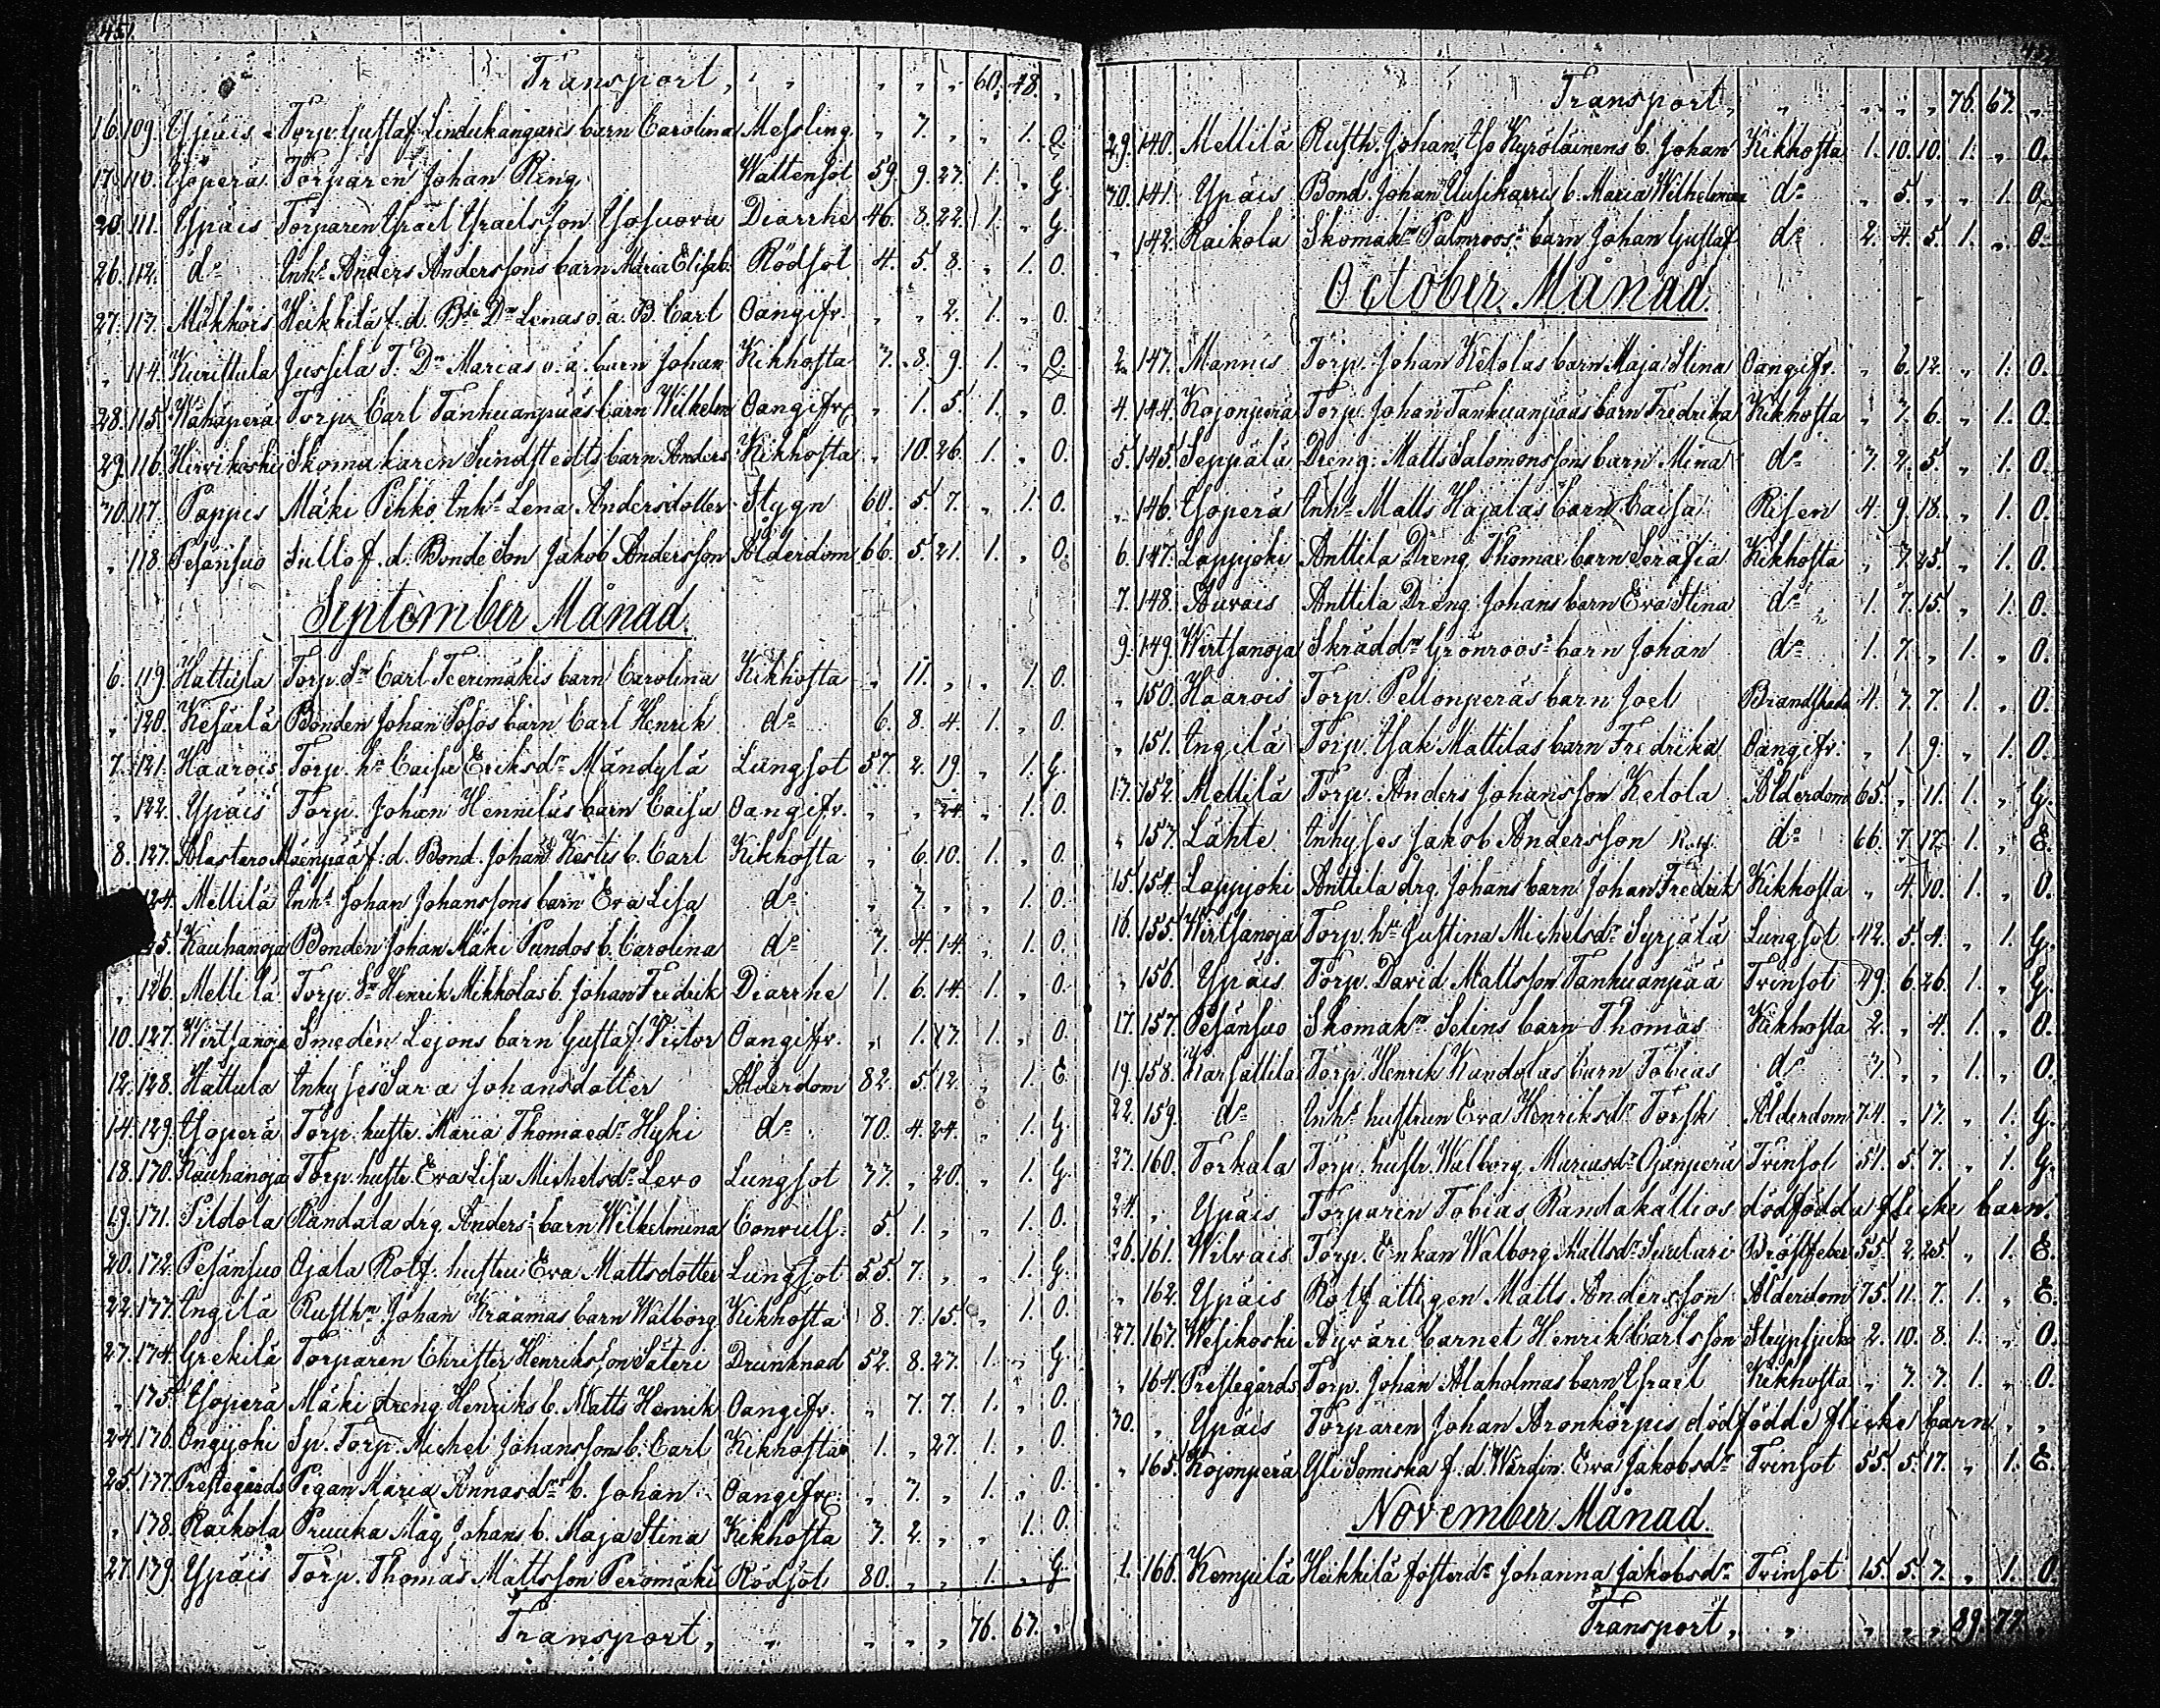 451.
Transport, „ „ „ „ „ 60. 48. „
16. 109. Ypäis Torp. Gustaf Lindukangares barn Carolina Messling „ 7. „ „ 1. O.
17. 110. Ysöperä Torparen Johan Ring Wattensot 59. 9. 27. 1. „ G.
20. 111. Ypäis Torparen Israel Israelsson Isosuova Diarrhe 46. 8. 22. 1. „ G.
26. 112. do Inhs Anders Anderssons barn Maria Elisab. Rödsot 4. 5. 8. „ 1. O.
27. 113. Heikkilä f. d. Bde Dr Lenas o. ä. B. Carl Oangifv. „ „ 2. 1. „ O.
„ 114. Kurittula Jussila T. Dr Marias o. ä. barn Johan Kikhosta 3. 8. 9. 1. „ O.
28. 115. Wähäperä Torp. Carl Tanhuanpääs barn Wilhelm Oangifv. „ 1. 5. 1. „ O.
29. 116. Hirvikoski Skomakaren Sundstedts barn Anders Kikhosta „ 10. 26. 1. „ O.
30. 117. Pappis Mäki Pihko Inhs Lena Andersdotter Stygn 60. 5. 7. „ 1. O.
„ 118. Pesänsuo Sullo f. d. Bonde Son Jakob Andersson Ålderdom 66. 5. 21. 1. „ O.
September Månad.
6. 119. Hattula Torp. Sn Carl Teerimäkis barn Carolina Kikhosta „ 11. „ „ 1. O.
„ 120. Kesärlä Bonden Johan Sosos barn Carl Henrik do 6. 8. 4. 1. „ O.
7. 121. Haarois Torp. hu Caisa Eriksdr Mändylä Lungsot 57. 2. 19. „ 1. G.
„ 122. Ypäis Torp. Johan Hennilas barn Caisa Oangifv. „ „ 24. „ 1. O.
8. 123. Alastaro Mäenpää f. d. Bond. Johan Kestis b. Carl Kikhosta „ 6. 10. 1. „ O.
124. Mellilä Inhs Johan Johanssons barn Eva Lisa do „ 7. „ „ 1. O.
125. Kauhanoja Bonden Johan Mäki Pundos b. Carolina do 3. 4. 14. „ 1. O.
„ 126. Mellilä Torp. Sn Henrik Mikkolas b. Johan Fredrik Diarrhe 1. 6. 14. 1. „ O.
10. 127. Wirtsanoja Smeden Lejons barn Gustaf Victor Oangifv. „ 1. 13. 1. „ O.
12. 128. Hattula Inhyses Sara Johansdotter Ålderdom 82. 5. 12. „ 1. E.
14. 129. Ysoperä Torp. hustr. Maria Thomaedr Hyki do 70. 4. 24. „ 1. G.
18. 130. Kauhanoja Torp. hustr. Eva Lisa Michelsdr Levo Lungsot 33. „ 20. „ 1. G.
19. 131. Randala drg. Anders' barn Wilhelmina Convuls. 5. 1. „ „ 1. O.
20. 132. Pesänsuo Ojala Rotf. hustru Eva Mattsdotter Lungsot 55. 7. „ „ 1. G.
22. 133. Ingilä Rusthr Johan Kraamas barn Walborg Kikhosta 8. 7. 15. „ 1. O.
23. 134. Grekilä Torparen Christer Henriksson Säteri Drunknad 52. 8. 27. 1. „ G.
„ 135. Ysoperä Mäki dreng Henriks b. Matts Henrik Oangifv. „ 7. 7. 1. „ O.
24. 136. Ongijoki Sp. Torp. Michel Johanssons b. Carl Kikhosta 1. „ 27. 1. „ O.
25. 137. Prestegårds Pigan Maria Annasdrs b. Johan Oangifv. „ 7. „ 1. „ O.
„ 138. Raikola Pruuka Måg Johans b. Maja Stina Kikhosta 3. 2. „ „ 1. O.
27. 139. Ypäis Torp. Thomas Mattsson Peromäki Rödsot 80. „ „ 1. „ G.
Transport, „ „ „ „ 76. 67. „
Transport, „ „ „ „ 76. 67. „
29. 140. Mellilä Rusth. Johan Iso Kyröläinens b. Johan Kikhosta 1. 10. 10. 1. „ O.
30. 141. Ypäis Bond. Johan Uusikarris b. Maria Wilhelmina do „ 5. „ „ 1. O.
„ 142. Raikola Skomakrn Palmroos' barn Johan Gustaf do 2. 4. 5. 1. „ O.
October Månad.
2. 143. Mannis Torp. Johan Ketolas barn Maja Stina Oangifv. „ 6. 12. „ 1. O.
4. 144. Kojonperä Torp. Johan Tanhuanpääs barn Fredrika Kikhosta „ 7. 6. „ 1. O.
5. 145. Seppälä Dreng. Matts Salomonssons barn Mina do 3. 2. 5. „ 1. O.
„ 146. Ysoperä Inhs Matts Hajalas barn Caisa Risen 4. 9. 18. „ 1. O.
6. 147. Loppjoki Anttila Dreng Thomae barn Serafia Kikhosta „ 7. 25. „ 1. O.
7. 148. Auvais Anttila Dreng Johans barn Eva Stina do 1. 7. 15. „ 1. O.
9. 149. Wirtsanoja Skräddrn Grönroos' barn Johan do 1. 7. „ 1. „ O.
„ 150. Haarois Torp. Pellonperäs barn Joel Brandskada 4. 7. 7. 1. „ O.
„ 151. Ingilä Torp. Isak Mattilas barn Fredrika Oangifv. „ 1. 9. „ 1. O.
13. 152. Mellilä Torp. Anders Johansson Ketola Ålderdom 65. „ 11. 1. „ G.
„ 153. Lähte Inhyses Jakob Andersson do 66. 7. 12. 1. „ E.
15. 154. Loppjoki Anttila drg. Johans barn Johan Fredrik Kikhosta „ 4. 10. 1. „ O.
16. 155. Wirtsanoja Torp. hu Justina Michelsdr Syrjälä Lungsot 42. 5. 4. „ 1. G.
„ 156. Ypäis Torp. David Mattsson Tanhuanpää Tvinsot 49. 6. 26. 1. „ G.
17. 157. Pesänsuo Skomakrn Selins barn Thomas Kikhosta 2. „ 4. 1. „ O.
19. 158. Karsattila Torp. Henrik Kandolas barn Tobias do „ „ 1. „ O.
22. 159. do Inhs hustrun Eva Henriksdr Torsk Ålderdom 74. „ 17. „ 1. G.
23. 160. Torkala Torp. hustr. Walborg Mariasdr Ojanperä Tvinsot 51. 5. 7. „ 1. G.
24. „ Ypäis Torparen Tobias Randakallios dödfödda flicke barn.
26. 161. Wilvais Torp. Enkan Walborg Mattsdr Suutari Bröstfeber 55. 2. 25. „ 1. E.
„ 162. Ypäis Rotfattigen Matts Andersson Ålderdom 75. 11. 7. 1. „ E.
27. 163. Wesikoski Ayväri barnet Henrik Carlsson Strypsjuka 2. 10. 8. 1. „ O.
„ 164. Prestegårds Torp. Johan Alaholmas barn Israel Kikhosta „ 7. 7. 1. „ O.
30. „ Ypäis Torparen Johan Aronkorpis dödfödde flicke barn „ „
„ 165. Kojonperä Yli Somiska f. d. Wärdin. Eva Jakobsdr Tvinsot 55. 5. 17. „ 1. E.
November Månad.
1. 166. Kempilä Heikkilä fosterdr Johanna Jakobsdr Tvinsot 15. 5. 7. „ 1. O.
Transport, „ „ „ „ 89. 77. „